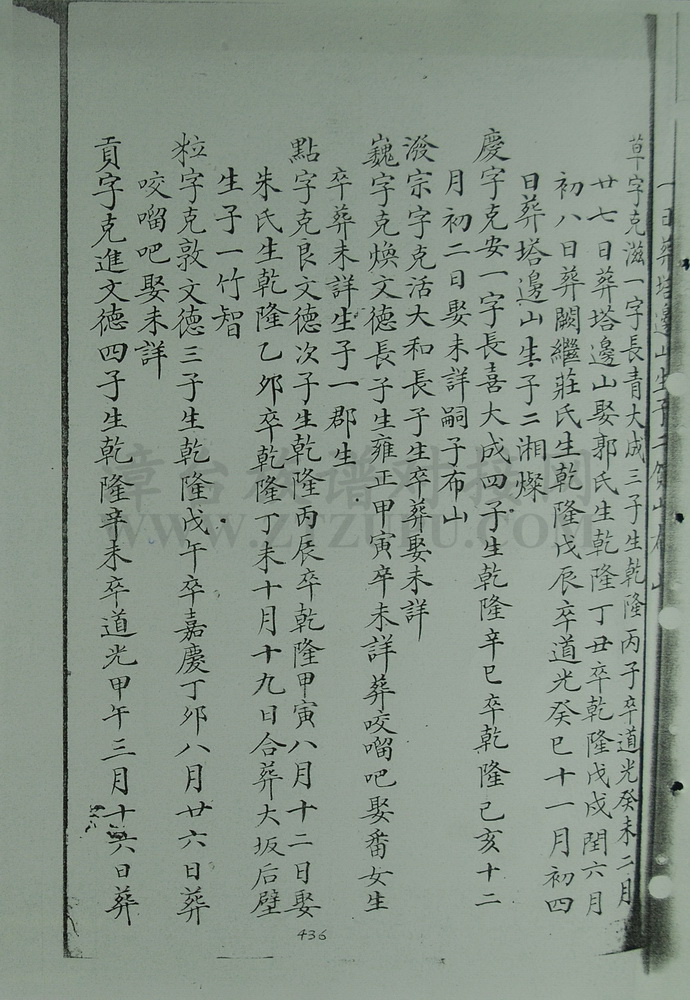 一日葬塔邊山生子二賀山布山
草字克滋一字長青大成三子生乾隆丙子卒道光癸未二月
廿七日葬塔邊山娶郭氏生乾隆丁丑卒乾隆戊戌閏六月
初八日葬闕繼莊氏生乾隆戊辰卒道光癸巳十一月初四
日葬塔邊山生子二湘燦
慶字克安一字長喜大成四子生乾隆辛巳卒乾隆己亥十二
月初二日娶未詳嗣子布山
潑宗字克活大和長子生卒葬娶未詳
巍字克煥文德長子生雍正甲寅卒未詳葬咬𠺕吧娶番女生
卒葬未詳生子一郡生
點字克良文德次子生乾隆丙辰卒乾隆甲寅八月十二日娶
朱氏生乾隆乙卯卒乾隆丁未十月十九日合葬大坂后壁
生子一竹智
粒字克敦文德三子生乾隆戊午卒嘉慶丁卯八月廿六日葬
咬𠺕吧娶未詳
貢字克進文德四子生乾隆辛未卒道光甲午三月十六日葬
436
章台族譜對接网
www.ztzupu.com